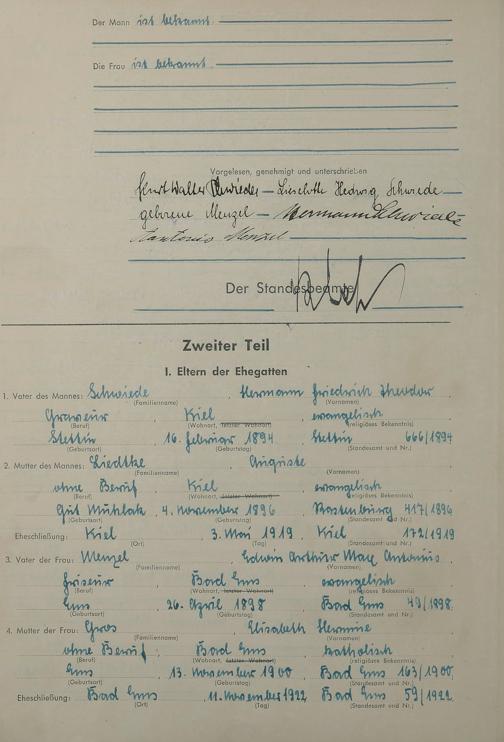 Der Mann ist bekannt.
Die Frau ist bekannt.
Vorgelesen, genehmigt und unterschrieben
Kurt Walter Schwiede — Lieselotte Hedwig Schwiede —
geborene Menzel — Hermann Schwiede
Antonius Menzel
Der Standesbeamte
Zweiter Teil
I. Eltern der Ehegatten
1. Vater des Mannes: Schwiede, Hermann Friedrich Theodor.
(Familienname) (Vornamen)
Graveur, Kiel, evangelisch
(Beruf) (Wohnort, letzter Wohnort) (religiöses Bekenntnis)
Stettin, 16. Februar 1894, Stettin 666/1894
(Geburtsort) (Geburtstag) (Standesamt und Nr.)
2. Mutter des Mannes: Liedtke, Auguste.
(Familienname) (Vornamen)
ohne Beruf, Kiel, evangelisch
(Beruf) (Wohnort, letzter Wohnort) (religiöses Bekenntnis)
Gut Mühlak, 4. November 1896, Rastenburg 417/1896
(Geburtsort) (Geburtstag) (Standesamt und Nr.)
Eheschließung: Kiel, 3. Mai 1919, Kiel 172/1919
(Ort) (Tag) (Standesamt und Nr.)
3. Vater der Frau: Menzel, Edwin Arthur Max Antonius.
(Familienname) (Vornamen)
Friseur, Bad Ems, evangelisch
(Beruf) (Wohnort, letzter Wohnort) (religiöses Bekenntnis)
Ems, 26. April 1898, Bad Ems 49/1898.
(Geburtsort) (Geburtstag) (Standesamt und Nr.)
4. Mutter der Frau: Gros, Elisabeth Hermine.
(Familienname) (Vornamen)
ohne Beruf, Bad Ems, katholisch
(Beruf) (Wohnort, letzter Wohnort) (religiöses Bekenntnis)
Ems, 13. November 1900, Bad Ems 163/1900.
(Geburtsort) (Geburtstag) (Standesamt und Nr.)
Eheschließung: Bad Ems, 11. November 1922, Bad Ems 59/1922.
(Ort) (Tag) (Standesamt und Nr.)